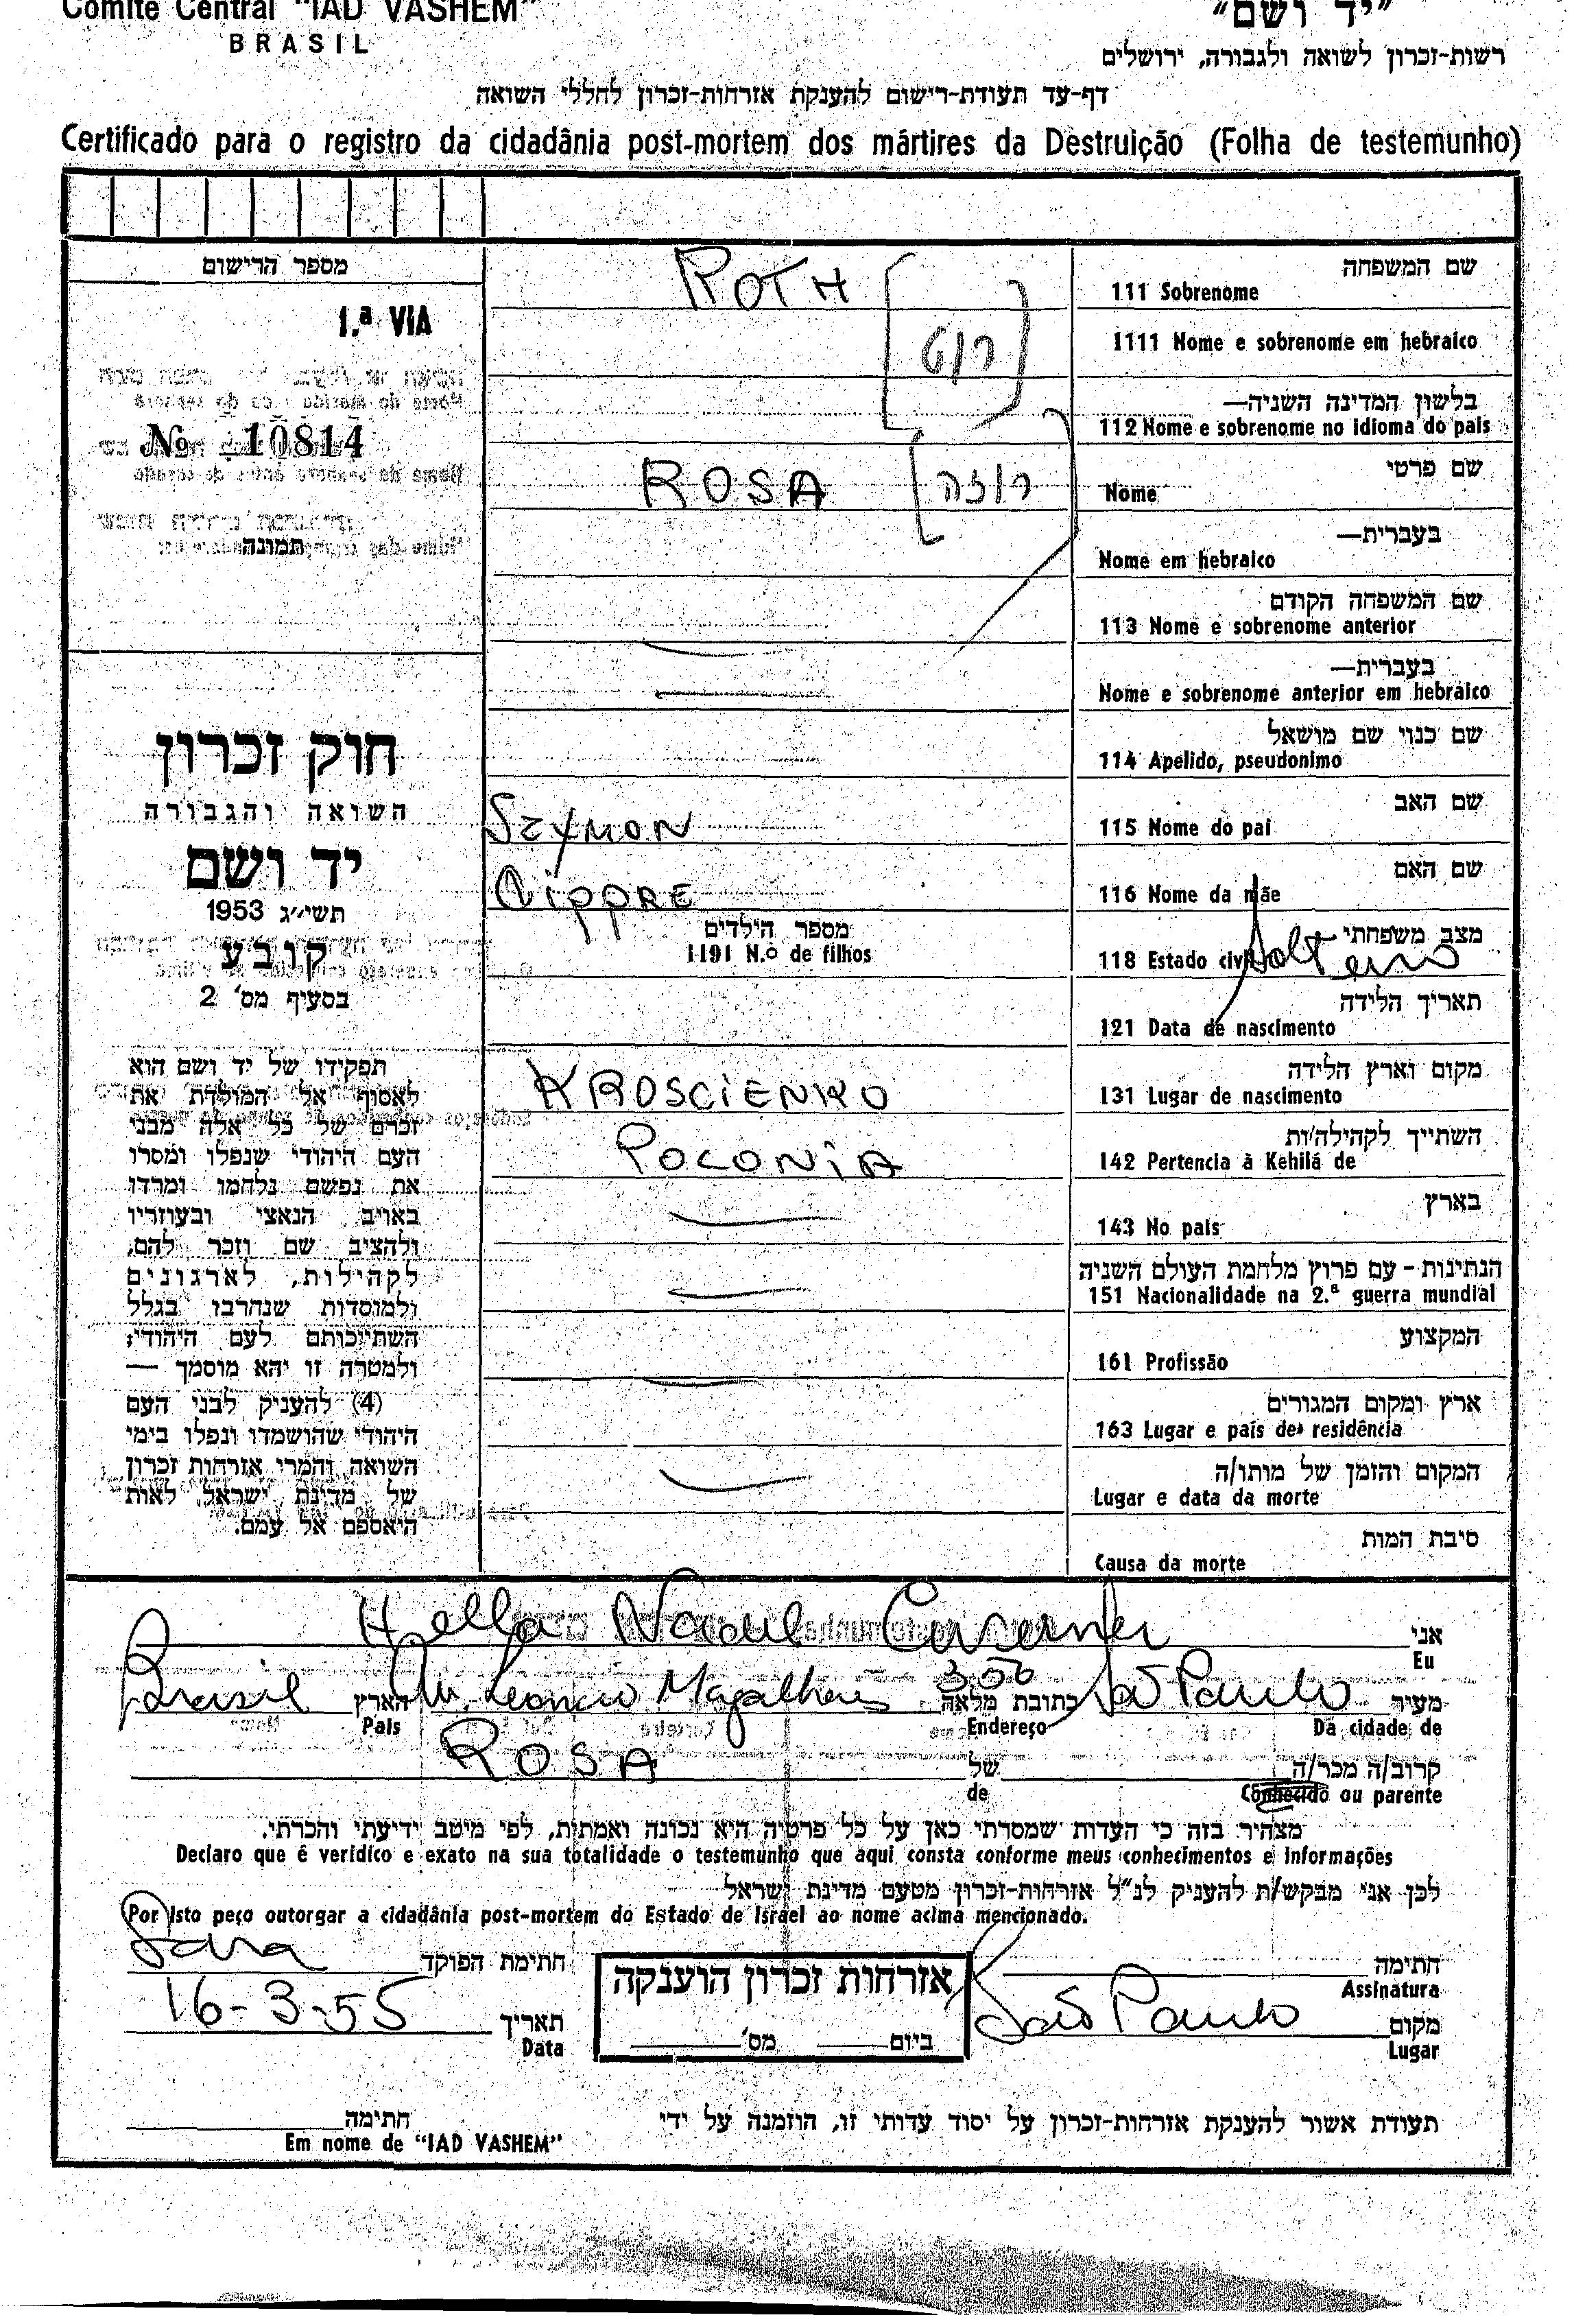 Comité Central "IAD VASHEM"
BRASIL
"יד ושם"
רשות-זכרון לשואה ולגבורה, ירושלים
דף-עד תעודת-רישום להענקת אזרחות-זכרון לחללי השואה
Certificado para o registro da cidadânia post-mortem dos mártires da Destruição (Folha de testemunho)
מספר הרישום
1.ª VIA
№ 10814
תמונה
חוק זכרון
השואה והגבורה
יד ושם
תשי״ג 1953
קובע
בסעיף מס' 2
תפקידו של יד ושם הוא
לאסוף אל המולדת את
זכרם של כל אלה מבני
העם היהודי שנפלו ומסרו
את נפשם נלחמו ומרדו
באויב הנאצי ובעוזריו
ולהציב שם וזכר להם,
לקהילות, לארגונים
ולמוסדות שנחרבו בגלל
השתייכותם לעם היהודי;
ולמטרה זו יהא מוסמך —
(4) להעניק לבני העם
היהודי שהושמדו ונפלו בימי
השואה והמרי אזרחות זכרון
של מדינת ישראל, לאות
היאספם אל עמם.
שם המשפחה
111 Sobrenome
ROTH
1111 Nome e sobrenome em hebraico
[רוט]
בלשון המדינה השניה—
112 Nome e sobrenome no idioma do pais
שם פרטי
Nome
ROSA [רוזה]
בעברית—
Nome em hebraico
שם המשפחה הקודם
113 Nome e sobrenome anterior
בעברית—
Nome e sobrenome anterior em hebraico
שם כנוי שם מושאל
114 Apelido, pseudonimo
שם האב
115 Nome do pai
SZYMON
שם האם
116 Nome da mãe
מצב משפחתי
118 Estado civil
Solteiro
מספר הילדים
1191 N.o de filhos
תאריך הלידה
121 Data de nascimento
מקום וארץ הלידה
131 Lugar de nascimento
KROSCIENKO
השתייך לקהילה/ות
142 Pertencia à Kehilá de
POLONIA
בארץ
143 No pais
הנתינות - עם פרוץ מלחמת העולם השניה
151 Nacionalidade na 2.ª guerra mundial
המקצוע
161 Profissão
ארץ ומקום המגורים
163 Lugar e país de residência
המקום והזמן של מותו/ה
Lugar e data da morte
סיבת המות
Causa da morte
אני
Eu
Hella
מעיר
Da cidade de
São Paulo
כתובת מלאה
Endereço
Leoncio Magalhaes 306
הארץ
Pais
Brasil
קרוב/ה מכר/ה
Conhecido ou parente
של
de
ROSA
מצהיר בזה כי העדות שמסרתי כאן על כל פרטיה היא נכונה ואמתית, לפי מיטב ידיעתי והכרתי.
Declaro que é verídico e exato na sua totalidade o testemunho que aqui consta conforme meus conhecimentos e informações
לכן אני מבקש/ת להעניק לנ"ל אזרחות-זכרון מטעם מדינת ישראל
Por isto peço outorgar a cidadânia post-mortem do Estado de Israel ao nome acima mencionado.
חתימה
Assinatura
חתימת הפוקד
מקום
Lugar
São Paulo
אזרחות זכרון הוענקה
ביום מס'
תאריך
Data
16-3-55
תעודת אשור להענקת אזרחות-זכרון על יסוד עדותי זו, הוזמנה על ידי
חתימה
Em nome de "IAD VASHEM"